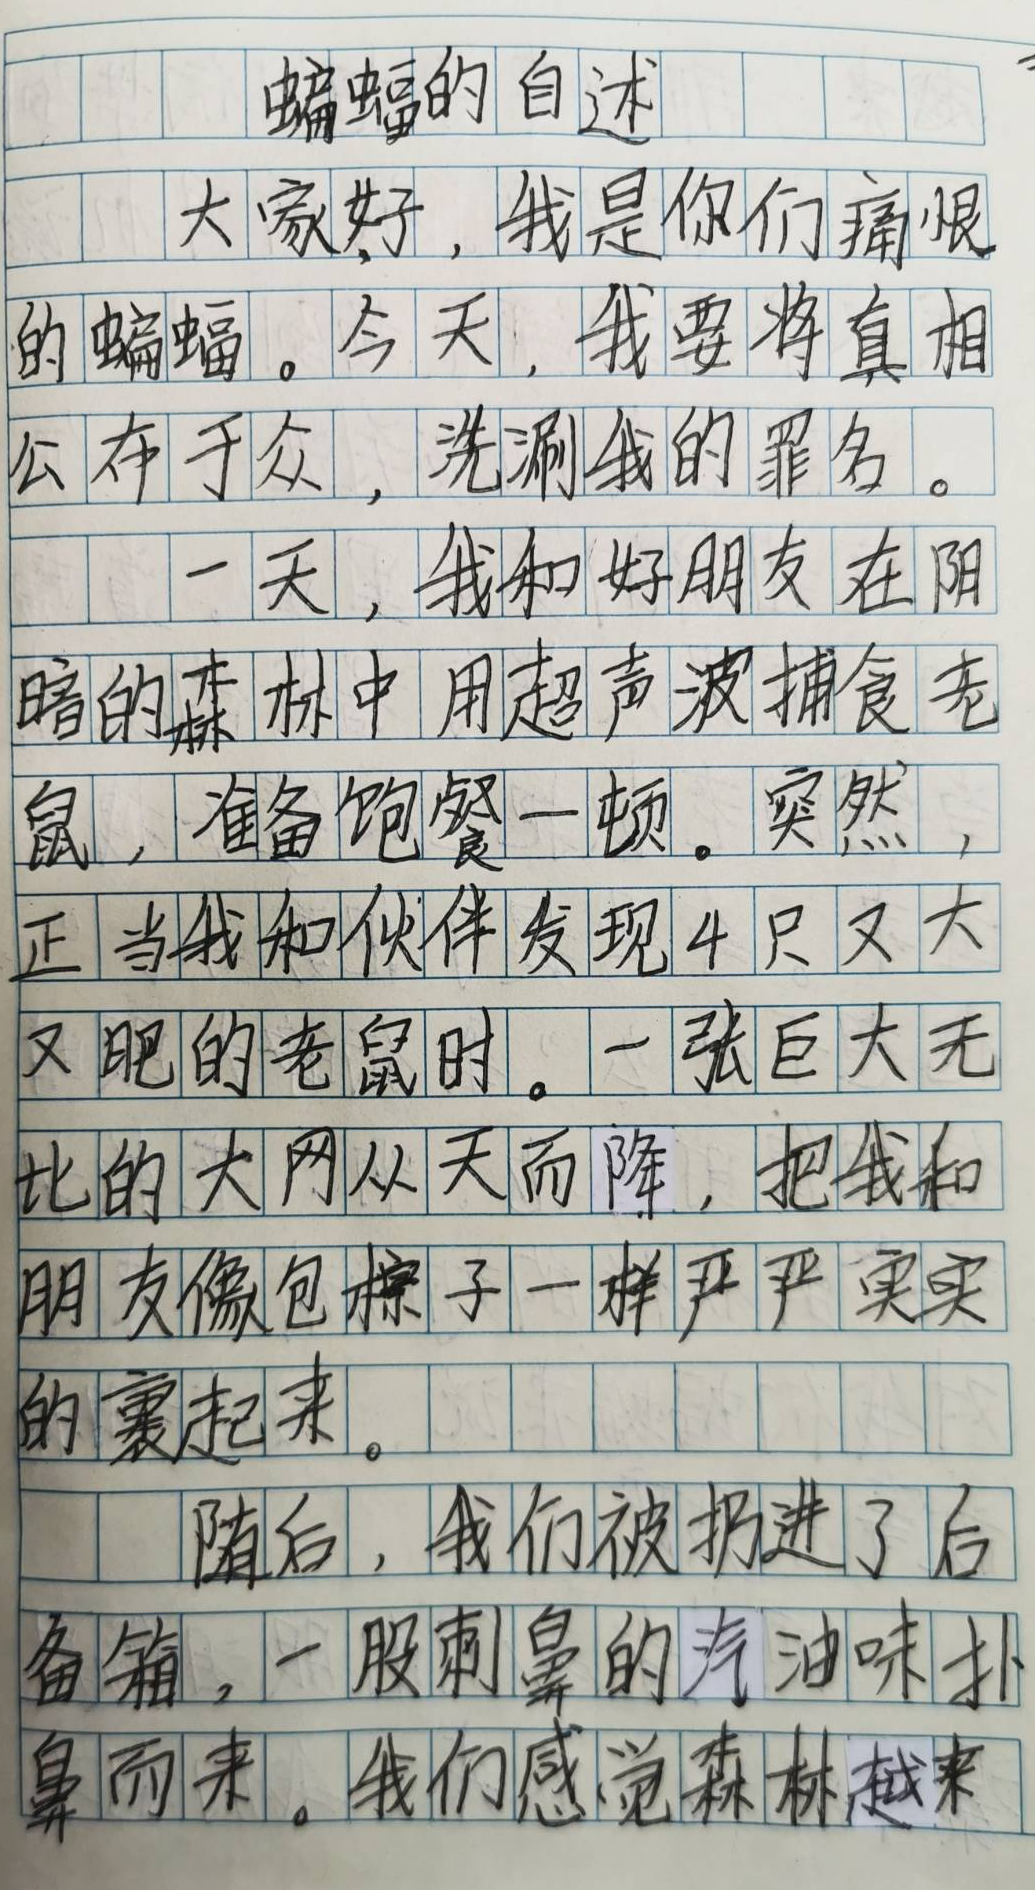 蝙蝠的自述
大家好，我是你们痛恨
的蝙蝠。今天，我要将真相
公布于众，洗涮我的罪名。
一天，我和好朋友在阴
暗的森林中用超声波捕食老
鼠，准备饱餐一顿。突然，
正当我和伙伴发现4只又大
又肥的老鼠时。一张巨大无
比的大网从天而降，把我和
朋友像包粽子一样严严实实
的裹起来。
随后，我们被扔进了后
备箱，一股刺鼻的汽油味扑
鼻而来。我们感觉森林越来